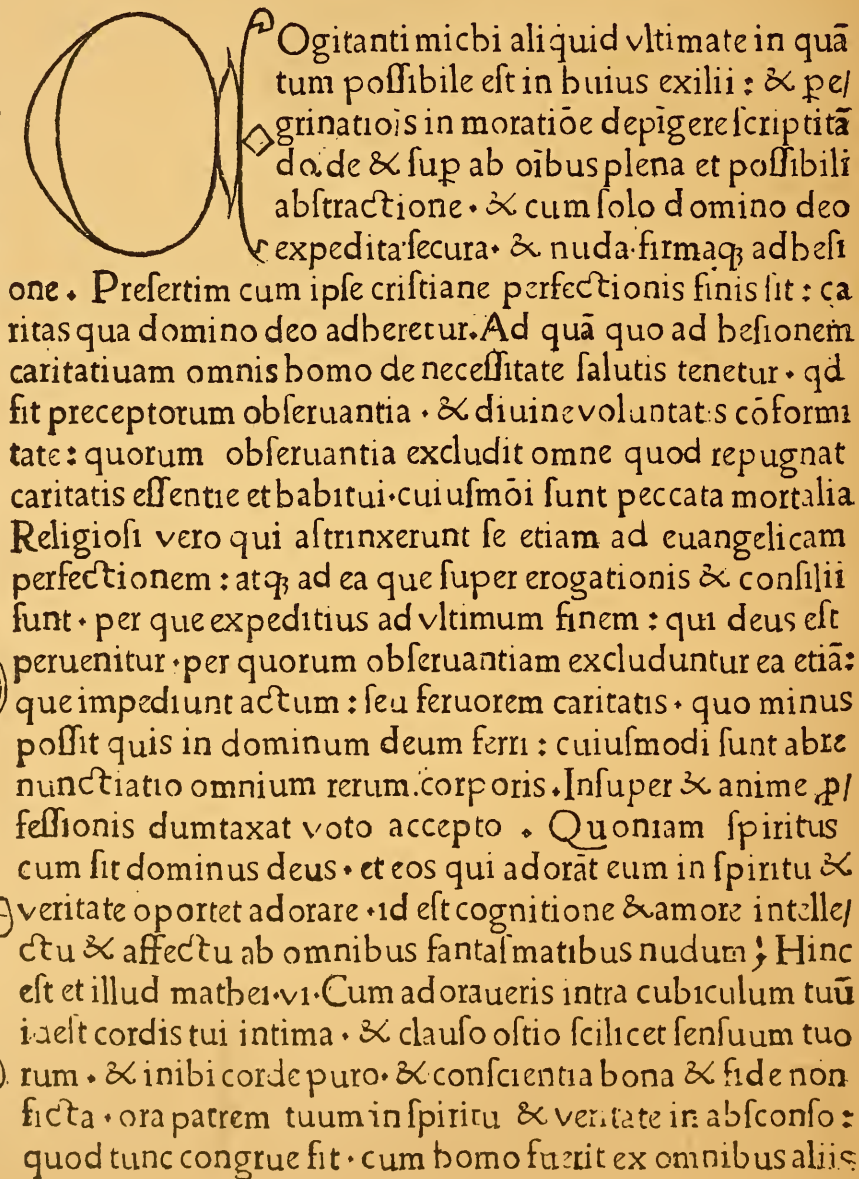 COgitanti michi aliquid vltimate in quā
tum poſſibile eſt in huius exilii : & pe/
grinatiois in moratiōe depīgere ſcriptitā
do. de & ſuꝑ ab oībus plena et poſſibili
abſtractione · & cum ſolo domino deo
expedita·ſecura· & nuda·firmaqꝫ adheſi
one . Preſertim cum ipſe criſtiane perfectionis finis ſit : ca
ritas qua domino deo adheretur. Ad quā quo ad heſionem
caritatiuam omnis homo de neceſſitate ſalutis tenetur · qd
fit preceptorum obſeruantia · & diuine voluntatis cōformi
tate : quorum obſeruantia excludit omne quod repugnat
caritatis eſſentie et habitui·cuiuſmōi ſunt peccata mortalia
Religioſi vero qui aſtrinxerunt ſe etiam ad euangelicam
perfectionem : atqꝫ ad ea que ſuper erogationis & conſilii
ſunt · per que expeditius ad vltimum finem : qui deus eſt
peruenitur ·per quorum obſeruantiam excluduntur ea etiā:
que impediunt actum : ſeu feruorem caritatis · quo minus
poſſit quis in dominum deum ferri : cuiuſmodi ſunt abre
nunctiatio omnium rerum.corporis. Inſuper & anime ꝓ/
feſſionis dumtaxat voto accepto . Quoniam ſpiritus
cum ſit dominus deus · et eos qui adorāt eum in ſpiritu &
veritate oportet adorare ·id eſt cognitione & amore intelle/
ctu & affectu ab omnibus fantaſmatibus nudum ; Hinc
eſt et illud mathei·vi·Cum adoraueris intra cubiculum tuū
i.deſt cordis tui intima · & clauſo oſtio ſcilicet ſenſuum tuo
rum · & inibi corde puro· & conſcientia bona & fide non
ficta · ora patrem tuum in ſpiritu & veritate in abſconſo :
quod tunc congrue fit · cum homo fuerit ex omnibus aliis